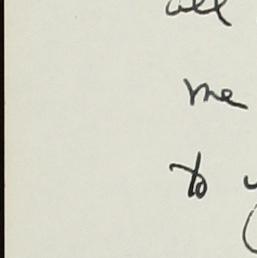 all
me
to